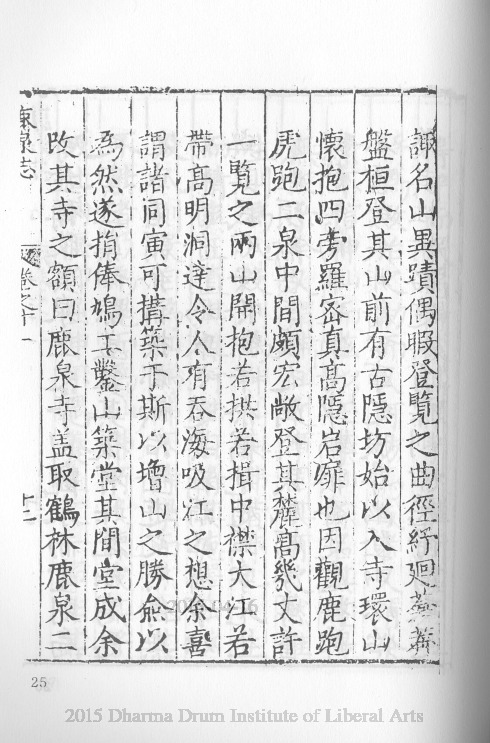 諏名山異蹟偶暇登覽之曲徑紆廻
盤桓登其山前有古隱坊始以入寺環山
懷抱四旁羅密真高隱岩扉也因觀鹿跑
虎跑二泉中間頗宏敞登其麓高幾丈許
一覽之兩山開抱若拱若揖中襟大江若
帶高明洞達令人有吞海吸江之想余喜
謂諸同寅可搆築于斯以增山之勝僉以
為然遂捐俸鳩工鑿山築堂其間堂成余
改其寺之額曰鹿泉寺盖取鶴林鹿泉二
泉志 卷之十一 十二
25
2015 Dharma Drum Institute of Liberal Arts